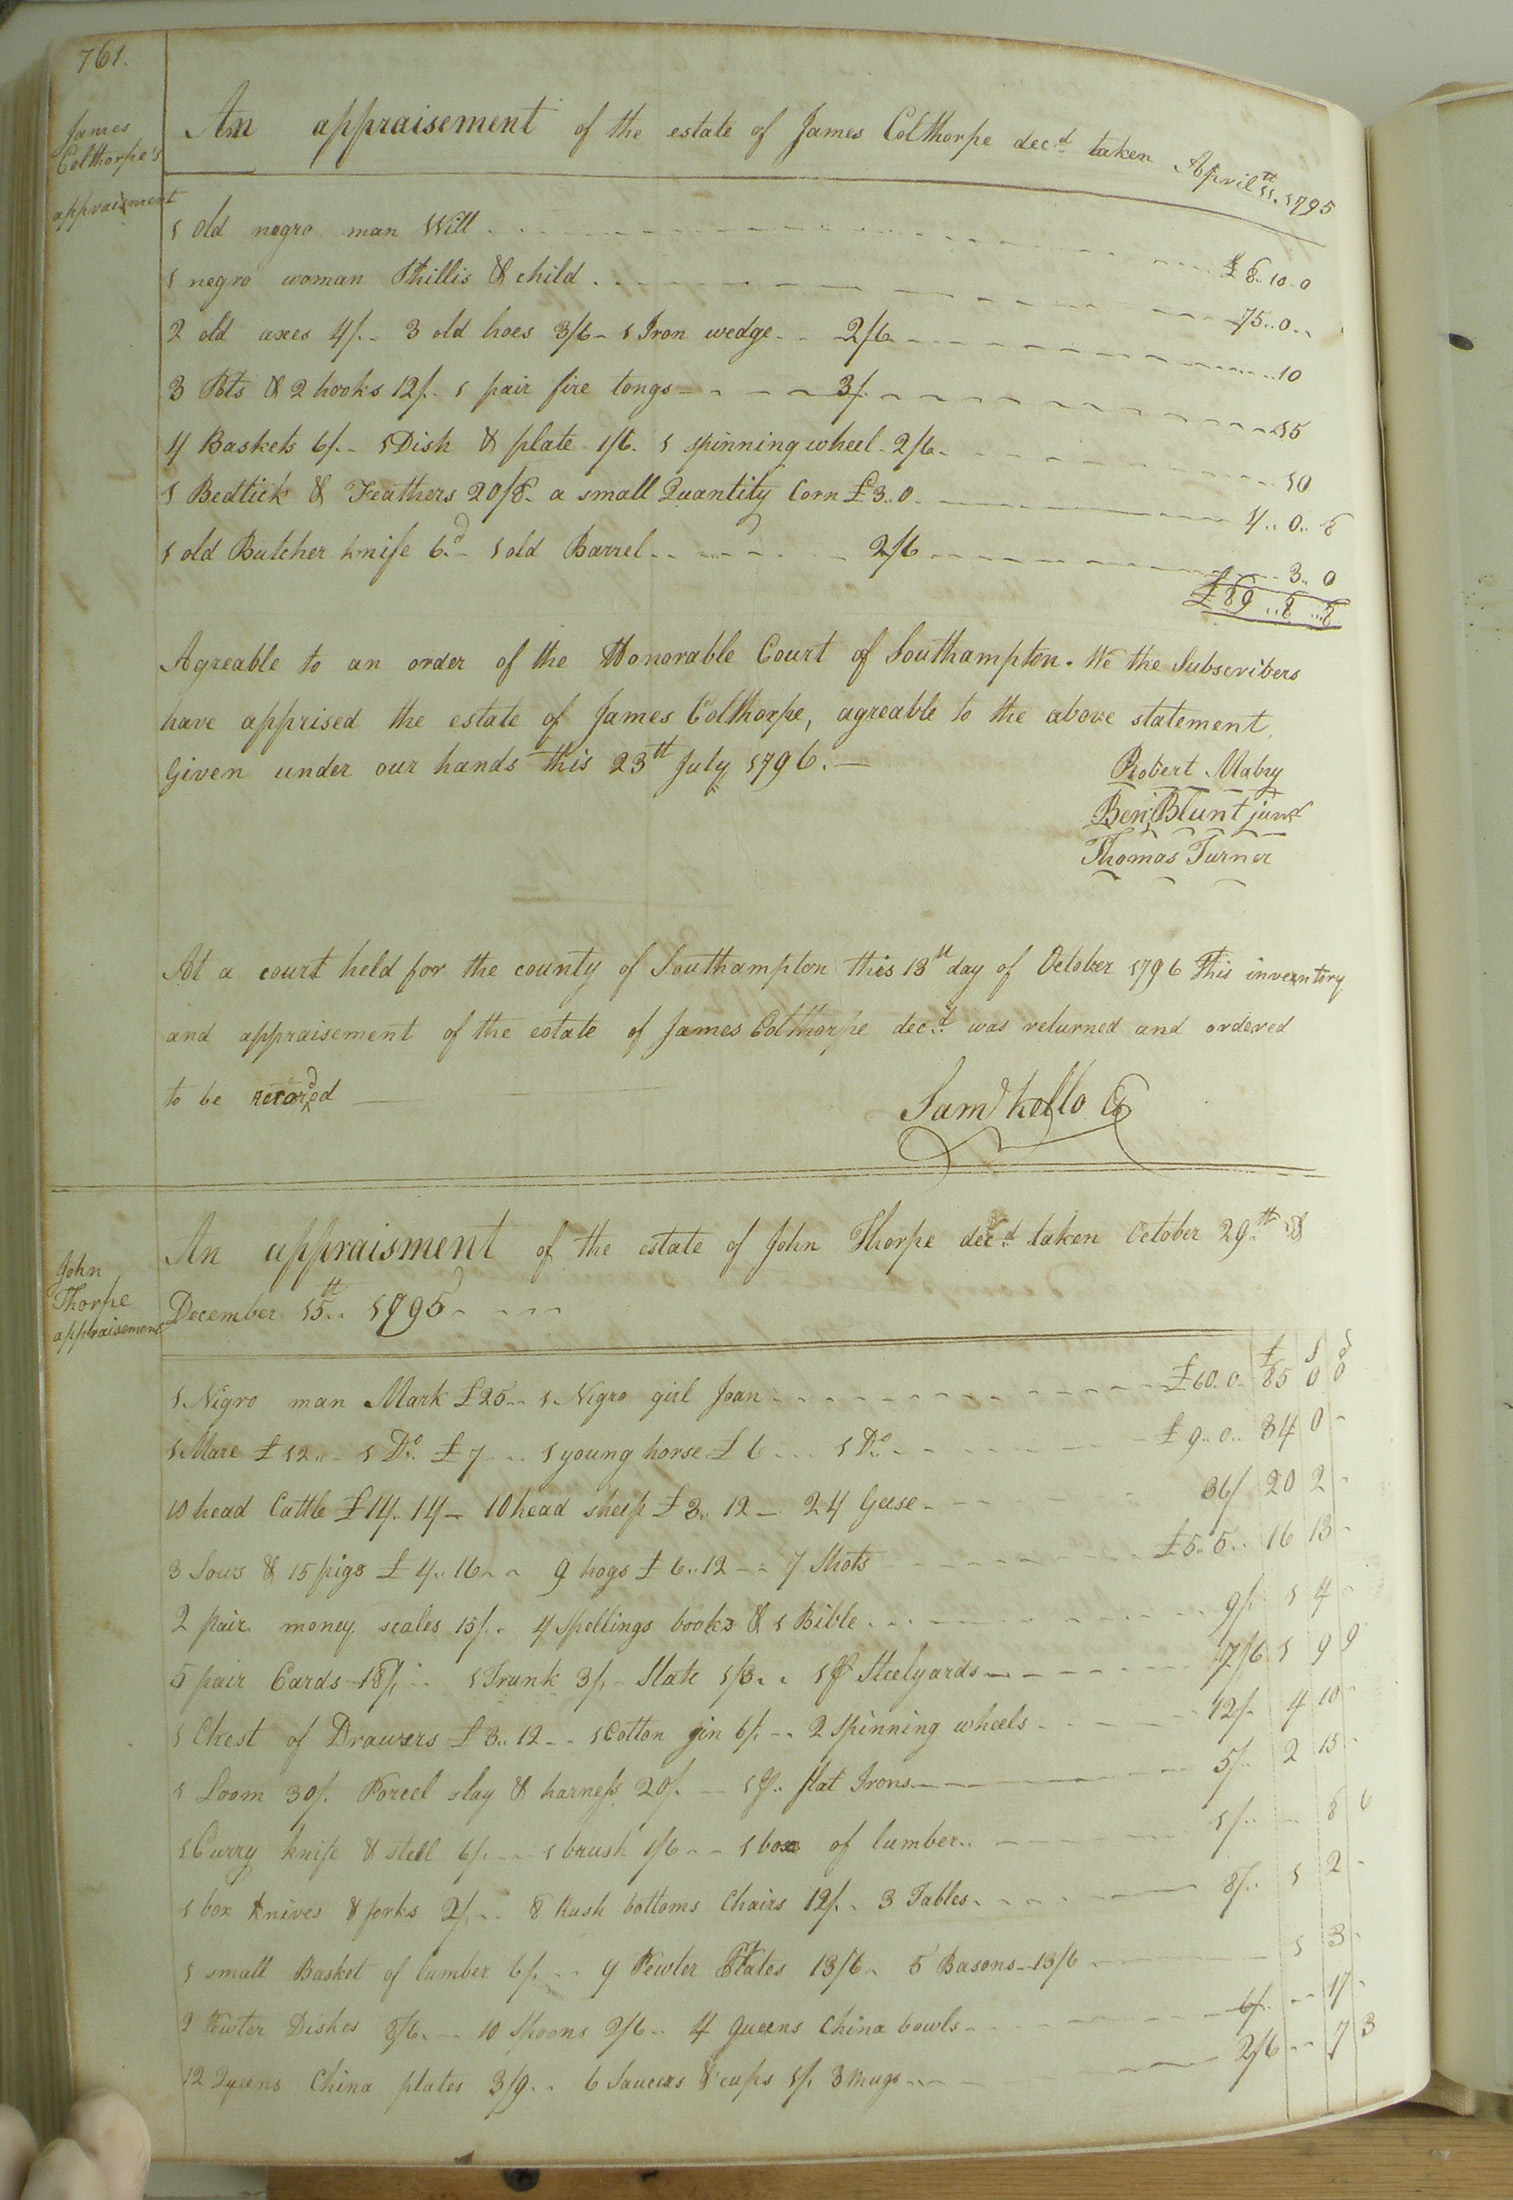 761.
James
Colthorpe's
appraisment
An appraisement of the estate of James Colthorpe decd. taken April 11th. 1795
1 old negro man Will £ 8.. 10..0
1 negro woman Phillis & child 75..0..
2 old axes 4/.- 3 old hoes 3/6- 1 Iron wedge 2/6 10
3 Pots & 2 hooks 12/. 1 pair fire tongs 3/. 15
4 Baskets 6/.- 1 Dish & plate 1/6. 1 spinning wheel 2/6. 10
1 Bedtick & Feathers 20/8. a small Quantity Corn £3..0 4.. 0.. 8
1 old Butcher knife 6d. 1 old Barrel 2/6 3.. 0
£ 89 ..8 ..8
Agreable to an order of the Honorable Court of Southampton. We the Subscribers
have apprised the estate of James Colthorpe, agreable to the above statement.
Given under our hands this 23th July 1796.
Robert Mabry
Benj Blunt junr
Thomas Turner
At a court held for the county of Southampton this 13th day of October 1796 This inventory
and appraisement of the estate of James Colthorpe decd. was returned and ordered
to be recorded
Saml Kello CC
John
Thorpe
appraisement
An appraisment of the estate of John Thorpe decd. taken October 29th. &
December 15th.. 1795.
£ S d
1 Nigro man Mark £25.. 1 Nigro girl Joan £60.0. 85 0 0
1 Mare £12.. 1 Do. £7 .. 1 young horse £6 ... 1 Do. £9..0.. 34 0 -
10 head Cattle £14.. 14- 10 head sheep £3.. 12 - 24 Geese 36/ 20 2 -
3 Sows & 15 pigs £4.. 16.. 9 hogs £6..12 -- 7 Shots £5..5.. 16 13 -
2 pair money scales 15/. 4 Spellings books & 1 Bible 9/ 1 4 -
5 pair Cards 18/. 1 Trunk 3/- Slate 1/3.. 1 pr Steelyards 7/6 1 9 9
1 Chest of Drawers £3.. 12.. 1 Cotton gin 6/. .. 2 Spinning wheels 12/. 4 10 -
1 Loom 30/. Porcel slay & harness 20/. -- 1 pr.. flat Irons 5/. 2 15 -
1 Curry knife & steel 6/. -- 1 brush 1/6 -- 1 box of lumber.. 1/.. -- 8 6
1 box knives & forks 2/. .. 8 Rush bottoms Chairs 12/. 3 Tables 8/.. 1 2 -
1 small Basket of lumber 6/. -- 9 Pewter Plates 13/6. 5 Basons 13/6 1 3 -
2 Pewter Dishes 8/6. -- 10 Spoons 2/6.. 4 Queens China bowls 6/. -- 17 -
12 Queens China plates 3/9.. 6 Saucers & cups 1/. 3 Mugs 2/6 -- 7 3